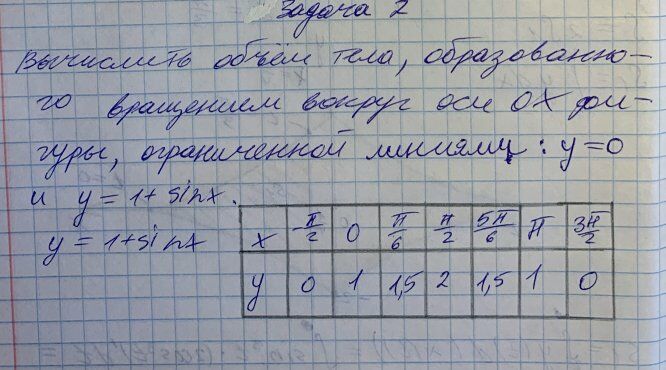 Задача 2
Вычислить объём тела, образованно-
го вращением вокруг оси OX фи-
гуры, ограниченной линиями: y=0
и y = 1 + sinx.
y = 1+sinx
x -π/2 0 π/6 π/2 5π/6 π 3π/2
y 0 1 1,5 2 1,5 1 0